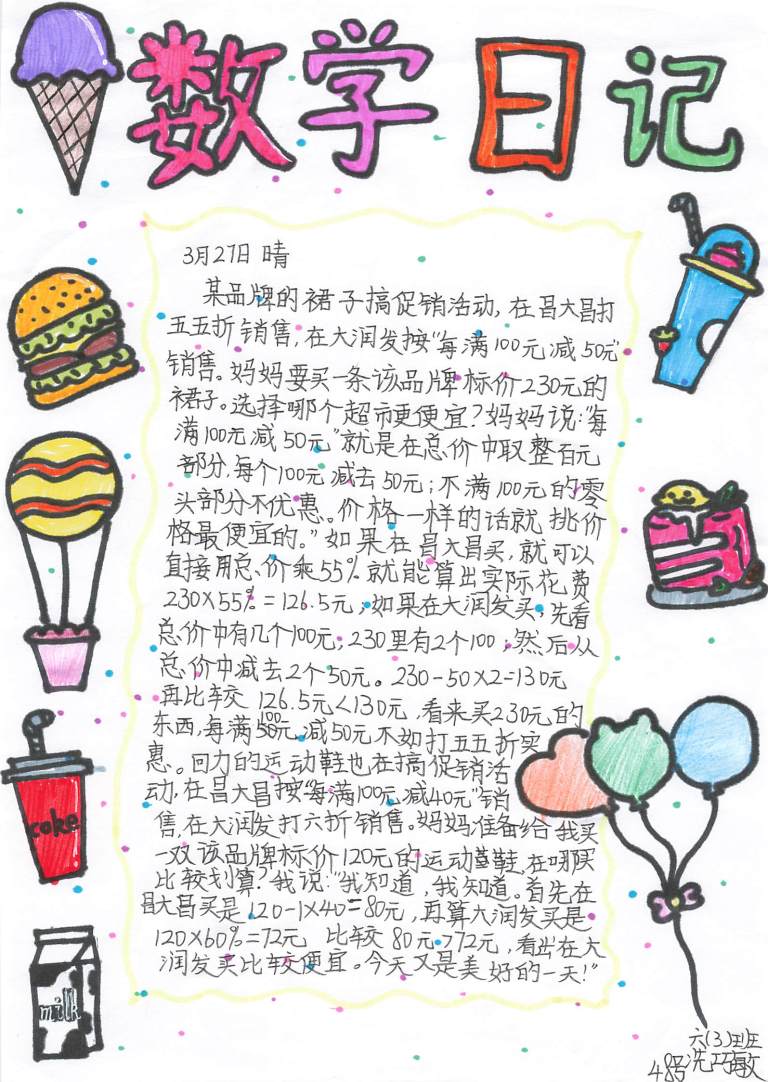 数学日记
3月27日 晴
某品牌的裙子搞促销活动,在昌大昌打
五五折销售,在大润发按"每满100元减50元"
销售。妈妈要买一条该品牌标价230元的
裙子。选择哪个超市更便宜?妈妈说:"每
满100元减50元"就是在总价中取整百元
部分,每个100元减去50元;不满100元的零
头部分不优惠。价格一样的话就挑价
格最便宜的。"如果在昌大昌买,就可以
直接用总价乘55%就能算出实际花费
230×55%=126.5元;如果在大润发买,先看
总价中有几个100元,230里有2个100;然后从
总价中减去2个50元。230-50×2=130元
再比较 126.5元<130元,看来买230元的
东西,每满100元减50元不如打五五折实
惠。回力的运动鞋也在搞促销活
动,在昌大昌按"每满100元减40元"销
售,在大润发打六折销售。妈妈准备给我买
一双该品牌标价120元的运动鞋,在哪买
比较划算?我说:"我知道,我知道。首先在
昌大昌买是120-1×40=80元,再算大润发买是
120×60%=72元 比较80元>72元,看出在大
润发买比较便宜。今天又是美好的一天!"
coke
milk
六(3)班
48号冼巧敏